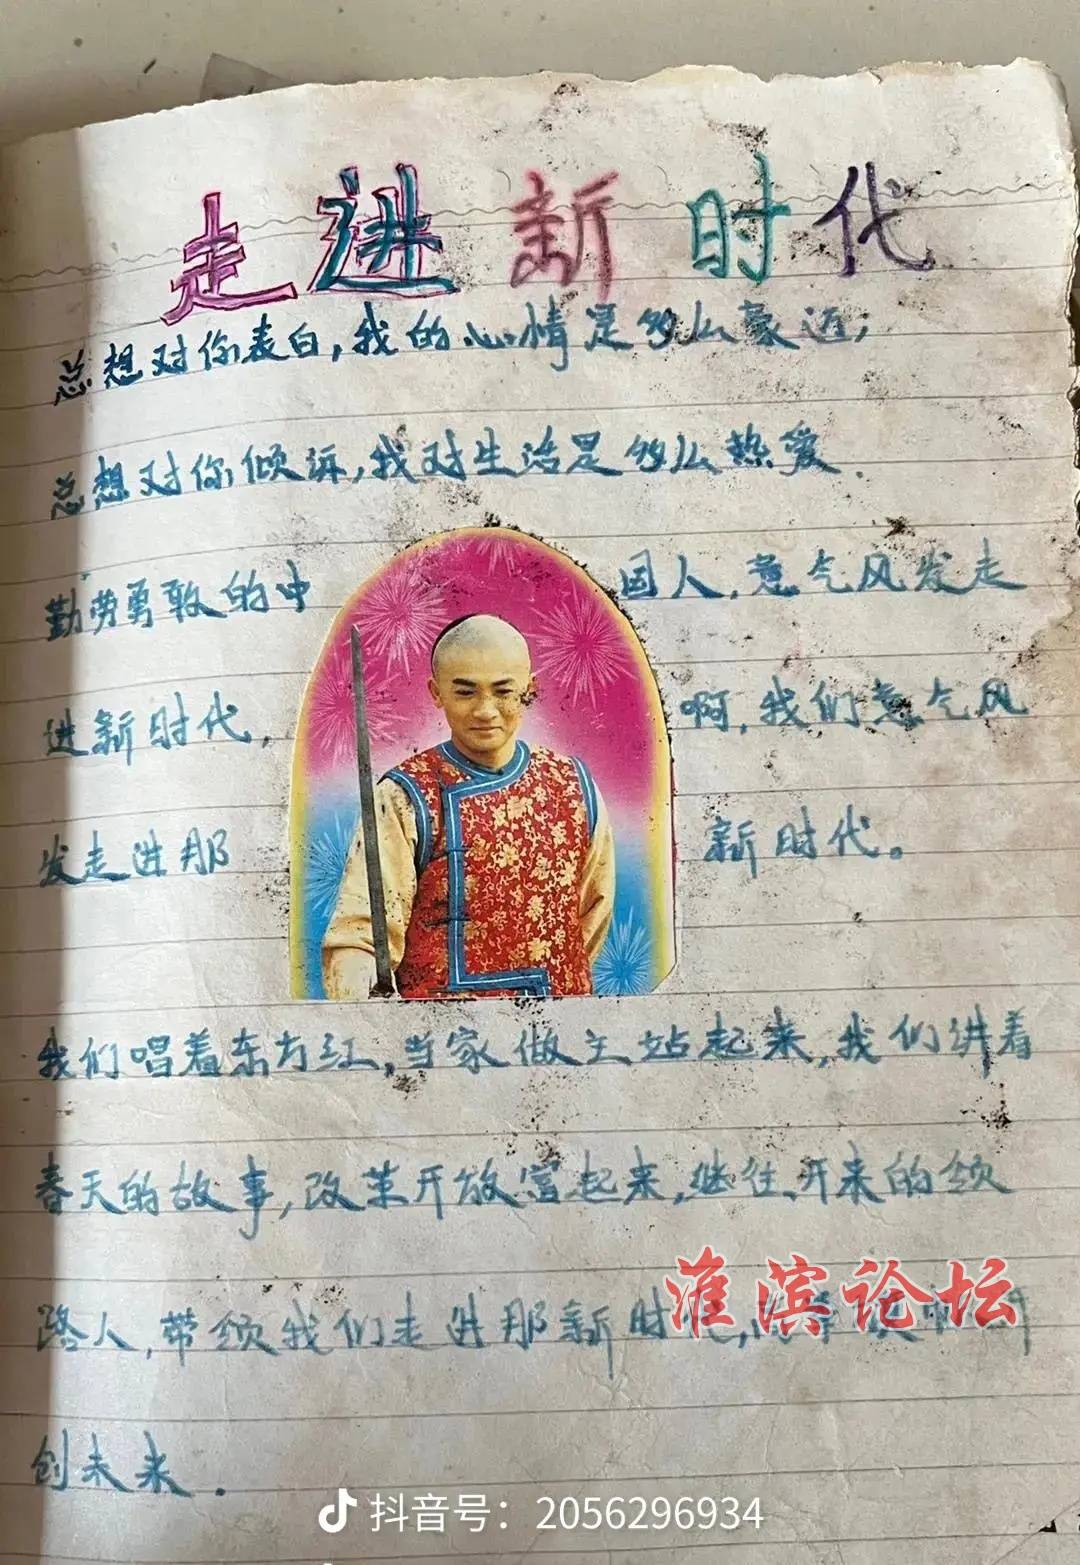 走进新时代
总想对你表白，我的心情是多么豪迈；
总想对你倾诉，我对生活是多么热爱.
勤劳勇敢的中国人，意气风发走
进新时代，啊，我们意气风
发走进那新时代。
我们唱着东方红，当家做主站起来，我们讲着
春天的故事，改革开放富起来，继往开来的领
路人，带领我们走进那新时
淮滨论坛
创未来.
抖音号：2056296934